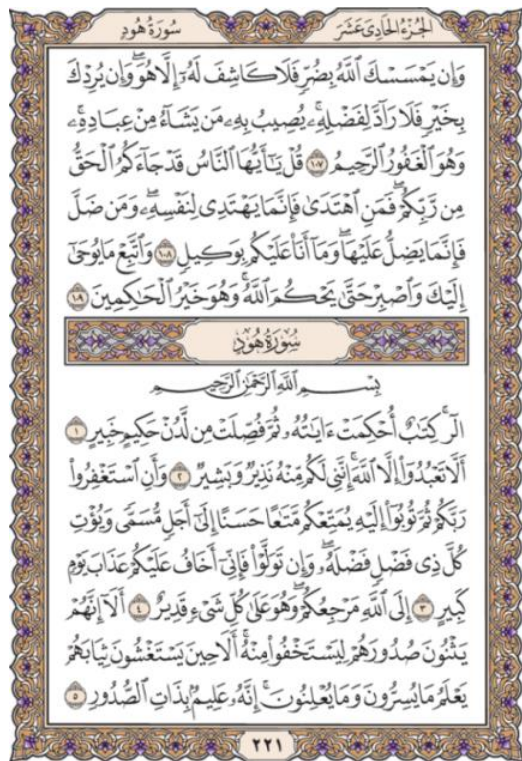 الجُزْءُ الحَادِي عَشَرَ سُورَةُ هُودٍ
وَإِن يَمْسَسْكَ ٱللَّهُ بِضُرٍّ فَلَا كَاشِفَ لَهُۥٓ إِلَّا هُوَۖ وَإِن يُرِدْكَ
بِخَيْرٍ فَلَا رَآدَّ لِفَضْلِهِۦۚ يُصِيبُ بِهِۦ مَن يَشَآءُ مِنْ عِبَادِهِۦۚ
وَهُوَ ٱلْغَفُورُ ٱلرَّحِيمُ ١٠٧ قُلْ يَٰٓأَيُّهَا ٱلنَّاسُ قَدْ جَآءَكُمُ ٱلْحَقُّ
مِن رَّبِّكُمْۖ فَمَنِ ٱهْتَدَىٰ فَإِنَّمَا يَهْتَدِى لِنَفْسِهِۦۖ وَمَن ضَلَّ
فَإِنَّمَا يَضِلُّ عَلَيْهَاۖ وَمَآ أَنَا۠ عَلَيْكُم بِوَكِيلٍ ١٠٨ وَٱتَّبِعْ مَا يُوحَىٰٓ
إِلَيْكَ وَٱصْبِرْ حَتَّىٰ يَحْكُمَ ٱللَّهُۚ وَهُوَ خَيْرُ ٱلْحَٰكِمِينَ ١٠٩
سُورَةُ هُودٍ
بِسْمِ ٱللَّهِ ٱلرَّحْمَٰنِ ٱلرَّحِيمِ
الٓرۚ كِتَٰبٌ أُحْكِمَتْ ءَايَٰتُهُۥ ثُمَّ فُصِّلَتْ مِن لَّدُنْ حَكِيمٍ خَبِيرٍ ١
أَلَّا تَعْبُدُوٓا۟ إِلَّا ٱللَّهَۚ إِنَّنِى لَكُم مِّنْهُ نَذِيرٌ وَبَشِيرٌ ٢ وَأَنِ ٱسْتَغْفِرُوا۟
رَبَّكُمْ ثُمَّ تُوبُوٓا۟ إِلَيْهِ يُمَتِّعْكُم مَّتَٰعًا حَسَنًا إِلَىٰٓ أَجَلٍ مُّسَمًّى وَيُؤْتِ
كُلَّ ذِى فَضْلٍ فَضْلَهُۥۖ وَإِن تَوَلَّوْا۟ فَإِنِّىٓ أَخَافُ عَلَيْكُمْ عَذَابَ يَوْمٍ
كَبِيرٍ ٣ إِلَى ٱللَّهِ مَرْجِعُكُمْۖ وَهُوَ عَلَىٰ كُلِّ شَىْءٍ قَدِيرٌ ٤ أَلَآ إِنَّهُمْ
يَثْنُونَ صُدُورَهُمْ لِيَسْتَخْفُوا۟ مِنْهُۚ أَلَا حِينَ يَسْتَغْشُونَ ثِيَابَهُمْ
يَعْلَمُ مَا يُسِرُّونَ وَمَا يُعْلِنُونَۚ إِنَّهُۥ عَلِيمٌۢ بِذَاتِ ٱلصُّدُورِ ٥
٢٢١